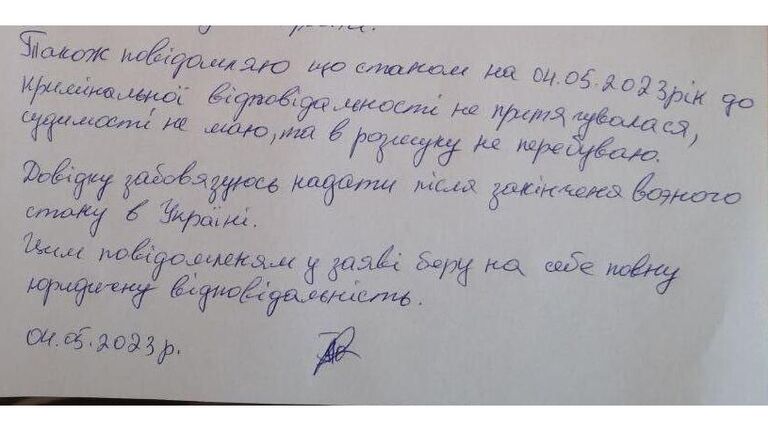 Також повідомляю що станом на 04.05.2023рік до
кримінальної відповідальності не притягувалася,
судимості не маю, та в розшуку не перебуваю.
Довідку забовязуюсь надати після закінченя воэного
стану в Україні.
Цим повідомленям у заяві беру на себе повну
юридичну відповідальність.
04.05.2023р.